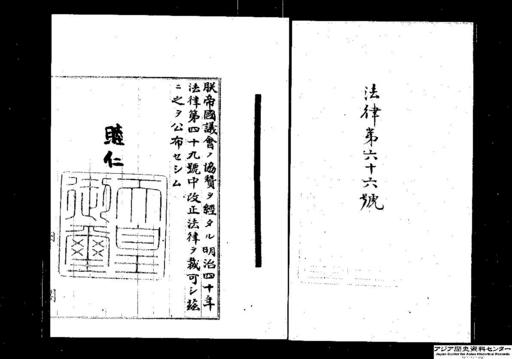 法律第六十六號
朕帝國議會ノ協贊ヲ經タル明治四十年
法律第四十九號中改正法律ヲ裁可シ玆
ニ之ヲ公布セシム
睦仁
天皇
御璽
アジア歴史資料センター
Japan Center for Asian Historical Records